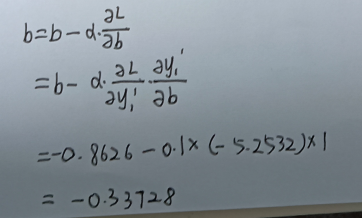 b=b-α·∂L/∂b
=b-α·∂L/∂y₁'·∂y₁'/∂b
=-0.8626-0.1×(-5.2532)×1
=-0.33728